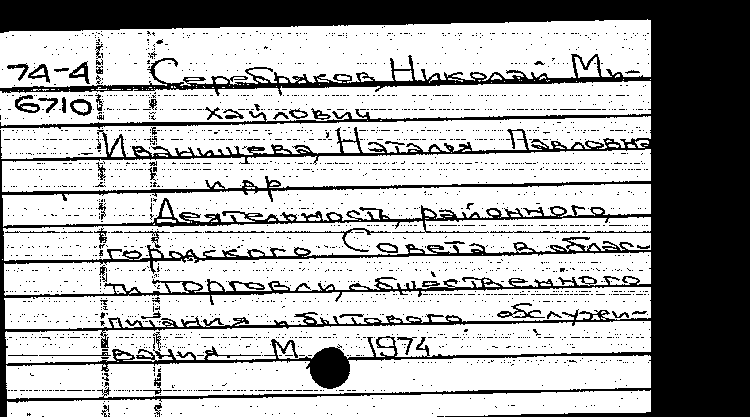 74-4 Серебряков, Николай Ми-
6710 хайлович
Иванищева, Наталья Павловна
и др
Деятельность районного,
городского Совета в облас-
ти торговли, общественного
питания и бытового обслужи-
вания. М, 1974.